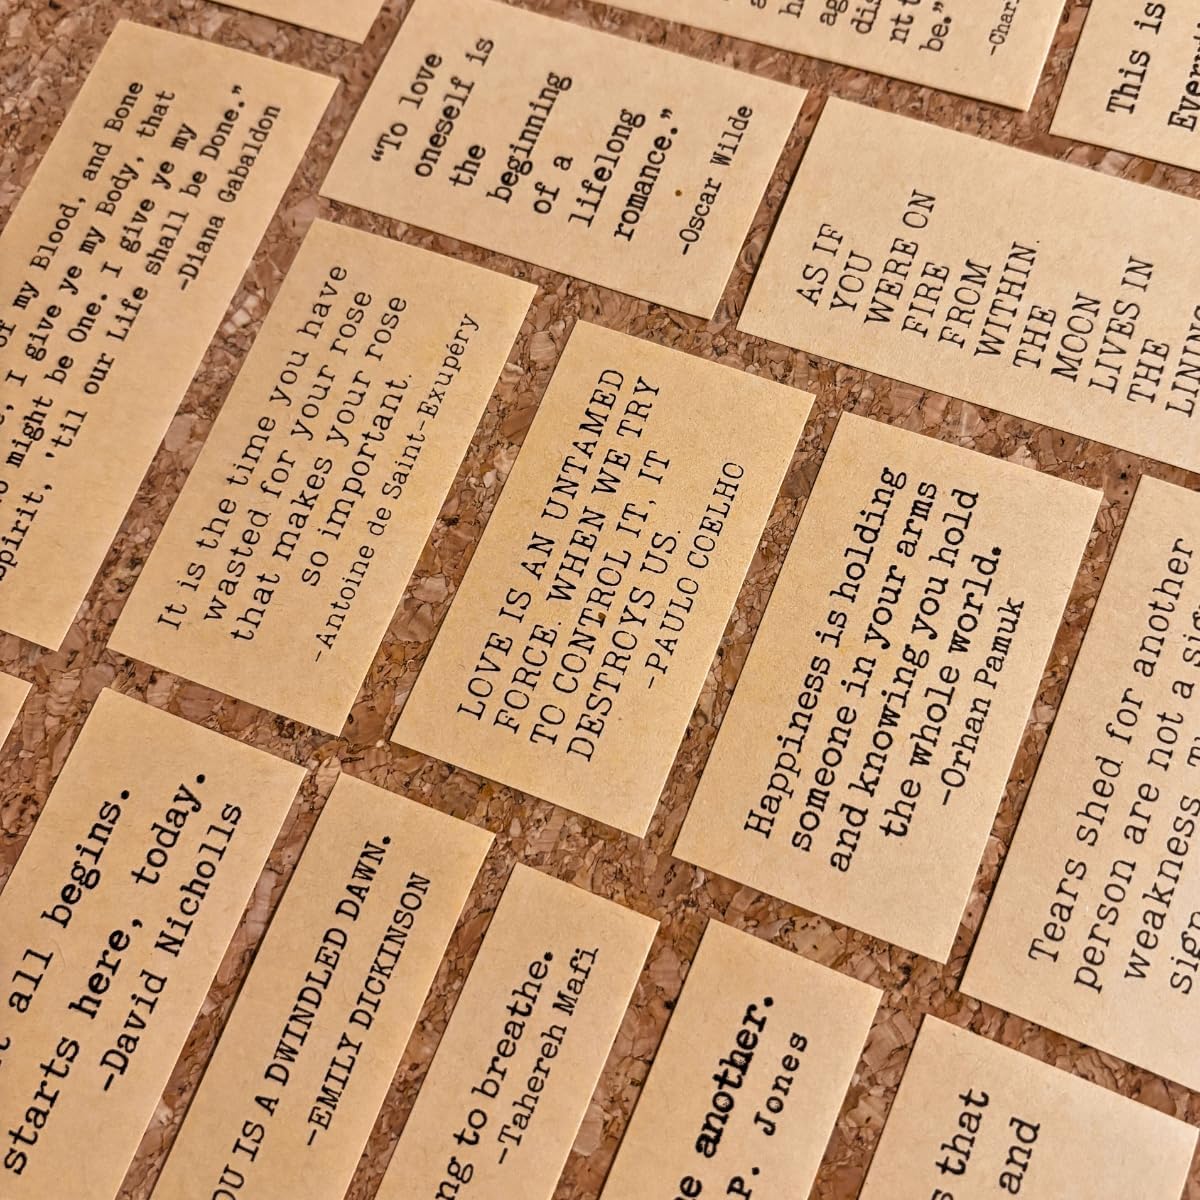 of my Blood, and Bone
I give ye my Body, that
might be One. I give ye my
'til our Life shall be Done.”
-Diana Gabaldon
“To love
oneself is
the
beginning
of a
lifelong
romance.”
-Oscar Wilde
be.”
This is
AS IF
YOU
WERE ON
FIRE
FROM
WITHIN.
THE
MOON
LIVES IN
THE
It is the time you have
wasted for your rose
that makes your rose
so important.
-Antoine de Saint-Exupéry
LOVE IS AN UNTAMED
FORCE. WHEN WE TRY
TO CONTROL IT, IT
DESTROYS US.
-PAULO COELHO
Happiness is holding
someone in your arms
and knowing you hold
the whole world.
-Orhan Pamuk
Tears shed for another
person are not a
weakness.
all begins.
starts here, today.
-David Nicholls
IS A DWINDLED DAWN.
-EMILY DICKINSON
to breathe.
-Tahereh Mafi
another.
P. Jones
that
and